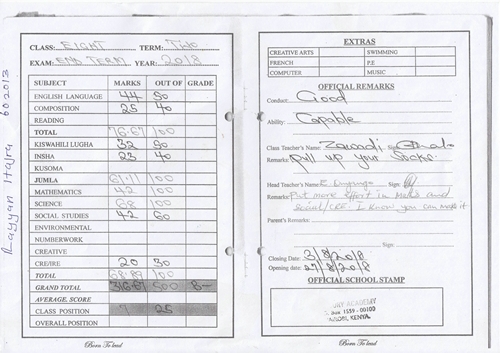 CLASS: EIGHT TERM: TWO
EXAM: END TERM YEAR: 2018
SUBJECT MARKS OUT OF GRADE
ENGLISH LANGUAGE 44 50
COMPOSITION 25 40
READING
TOTAL 76.67 100
KISWAHILI LUGHA 32 50
INSHA 23 40
KUSOMA
JUMLA 61.11 100
MATHEMATICS 42 100
SCIENCE 68 100
SOCIAL STUDIES 42 60
ENVIRONMENTAL
NUMBERWORK
CREATIVE
CRE/IRE 20 30
TOTAL 68.89 100
GRAND TOTAL 316.67 500 B-
AVERAGE. SCORE
CLASS POSITION 7 25
OVERALL POSITION
Born To lead
Rayyan
602013
EXTRAS
CREATIVE ARTS SWIMMING
FRENCH P.E
COMPUTER MUSIC
OFFICIAL REMARKS
Conduct: Good
Ability: Capable
Class Teacher's Name: Zawadi
Remarks: Pull up your socks.
Head Teacher's Name: E Sign:
Remarks: Put more effort in Maths and
Social/CRE. I know you can make it
Parent's Remarks:
Sign:
Closing Date: 3/8/2018
Opening date: 27/8/2018
OFFICIAL SCHOOL STAMP
ACADEMY
Box 1559 - 00100
KENYA
Born To lead